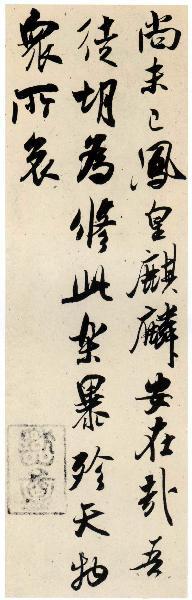 尚未已鳳皇麒麟安在哉吾
徒胡為縱此樂暴殄天物
聖所哀